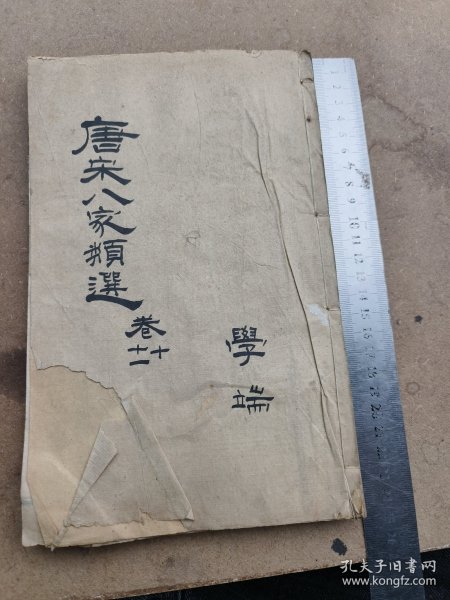 唐宋八家類選
卷十
十二
學端
1
2
3
4
5
6
7
8
9
10
11
12
13
14
15
16
17
18
19
20
21
孔夫子旧书网
www.kongfz.com